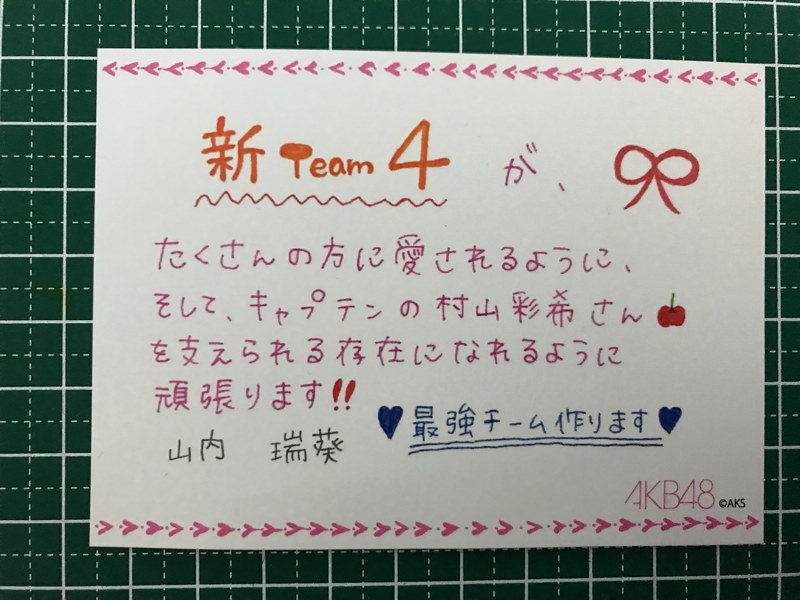 新 Team 4 が、
たくさんの方に愛されるように、
そして、キャプテンの村山彩希さん
を支えられる存在になれるように
頑張ります!!
最強チーム作ります
山内 瑞葵
AKB48 ©AKS